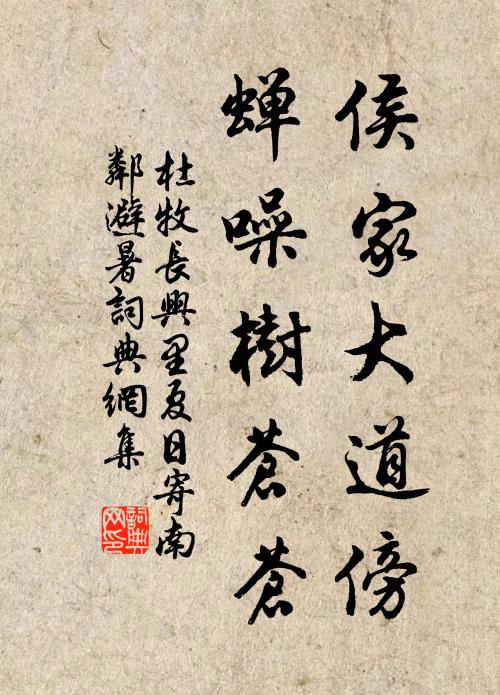 侯家大道傍
蝉噪樹蒼蒼
杜牧長興里夏日寄南
鄰避暑詞典網集
詞典
网印